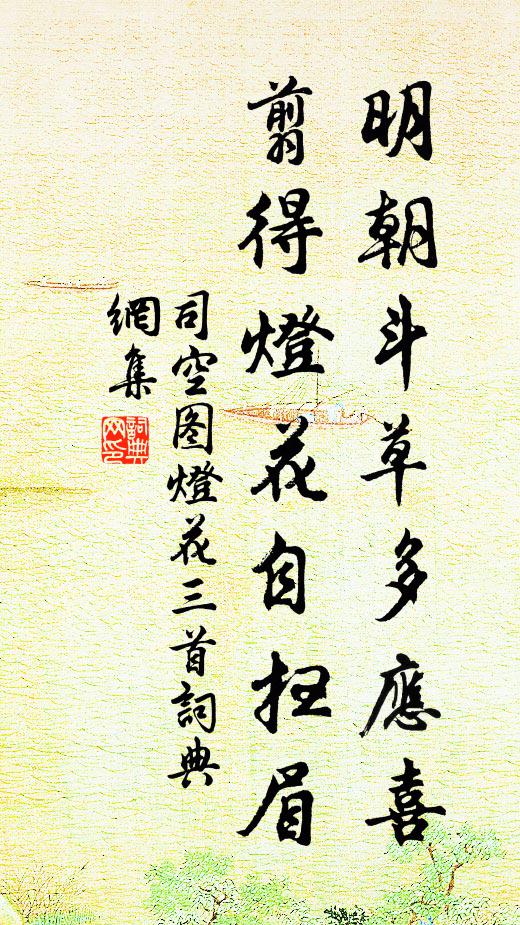 明朝斗草多應喜
剪得燈花自扫眉
司空图燈花三首詞典
網集
詞典
网印